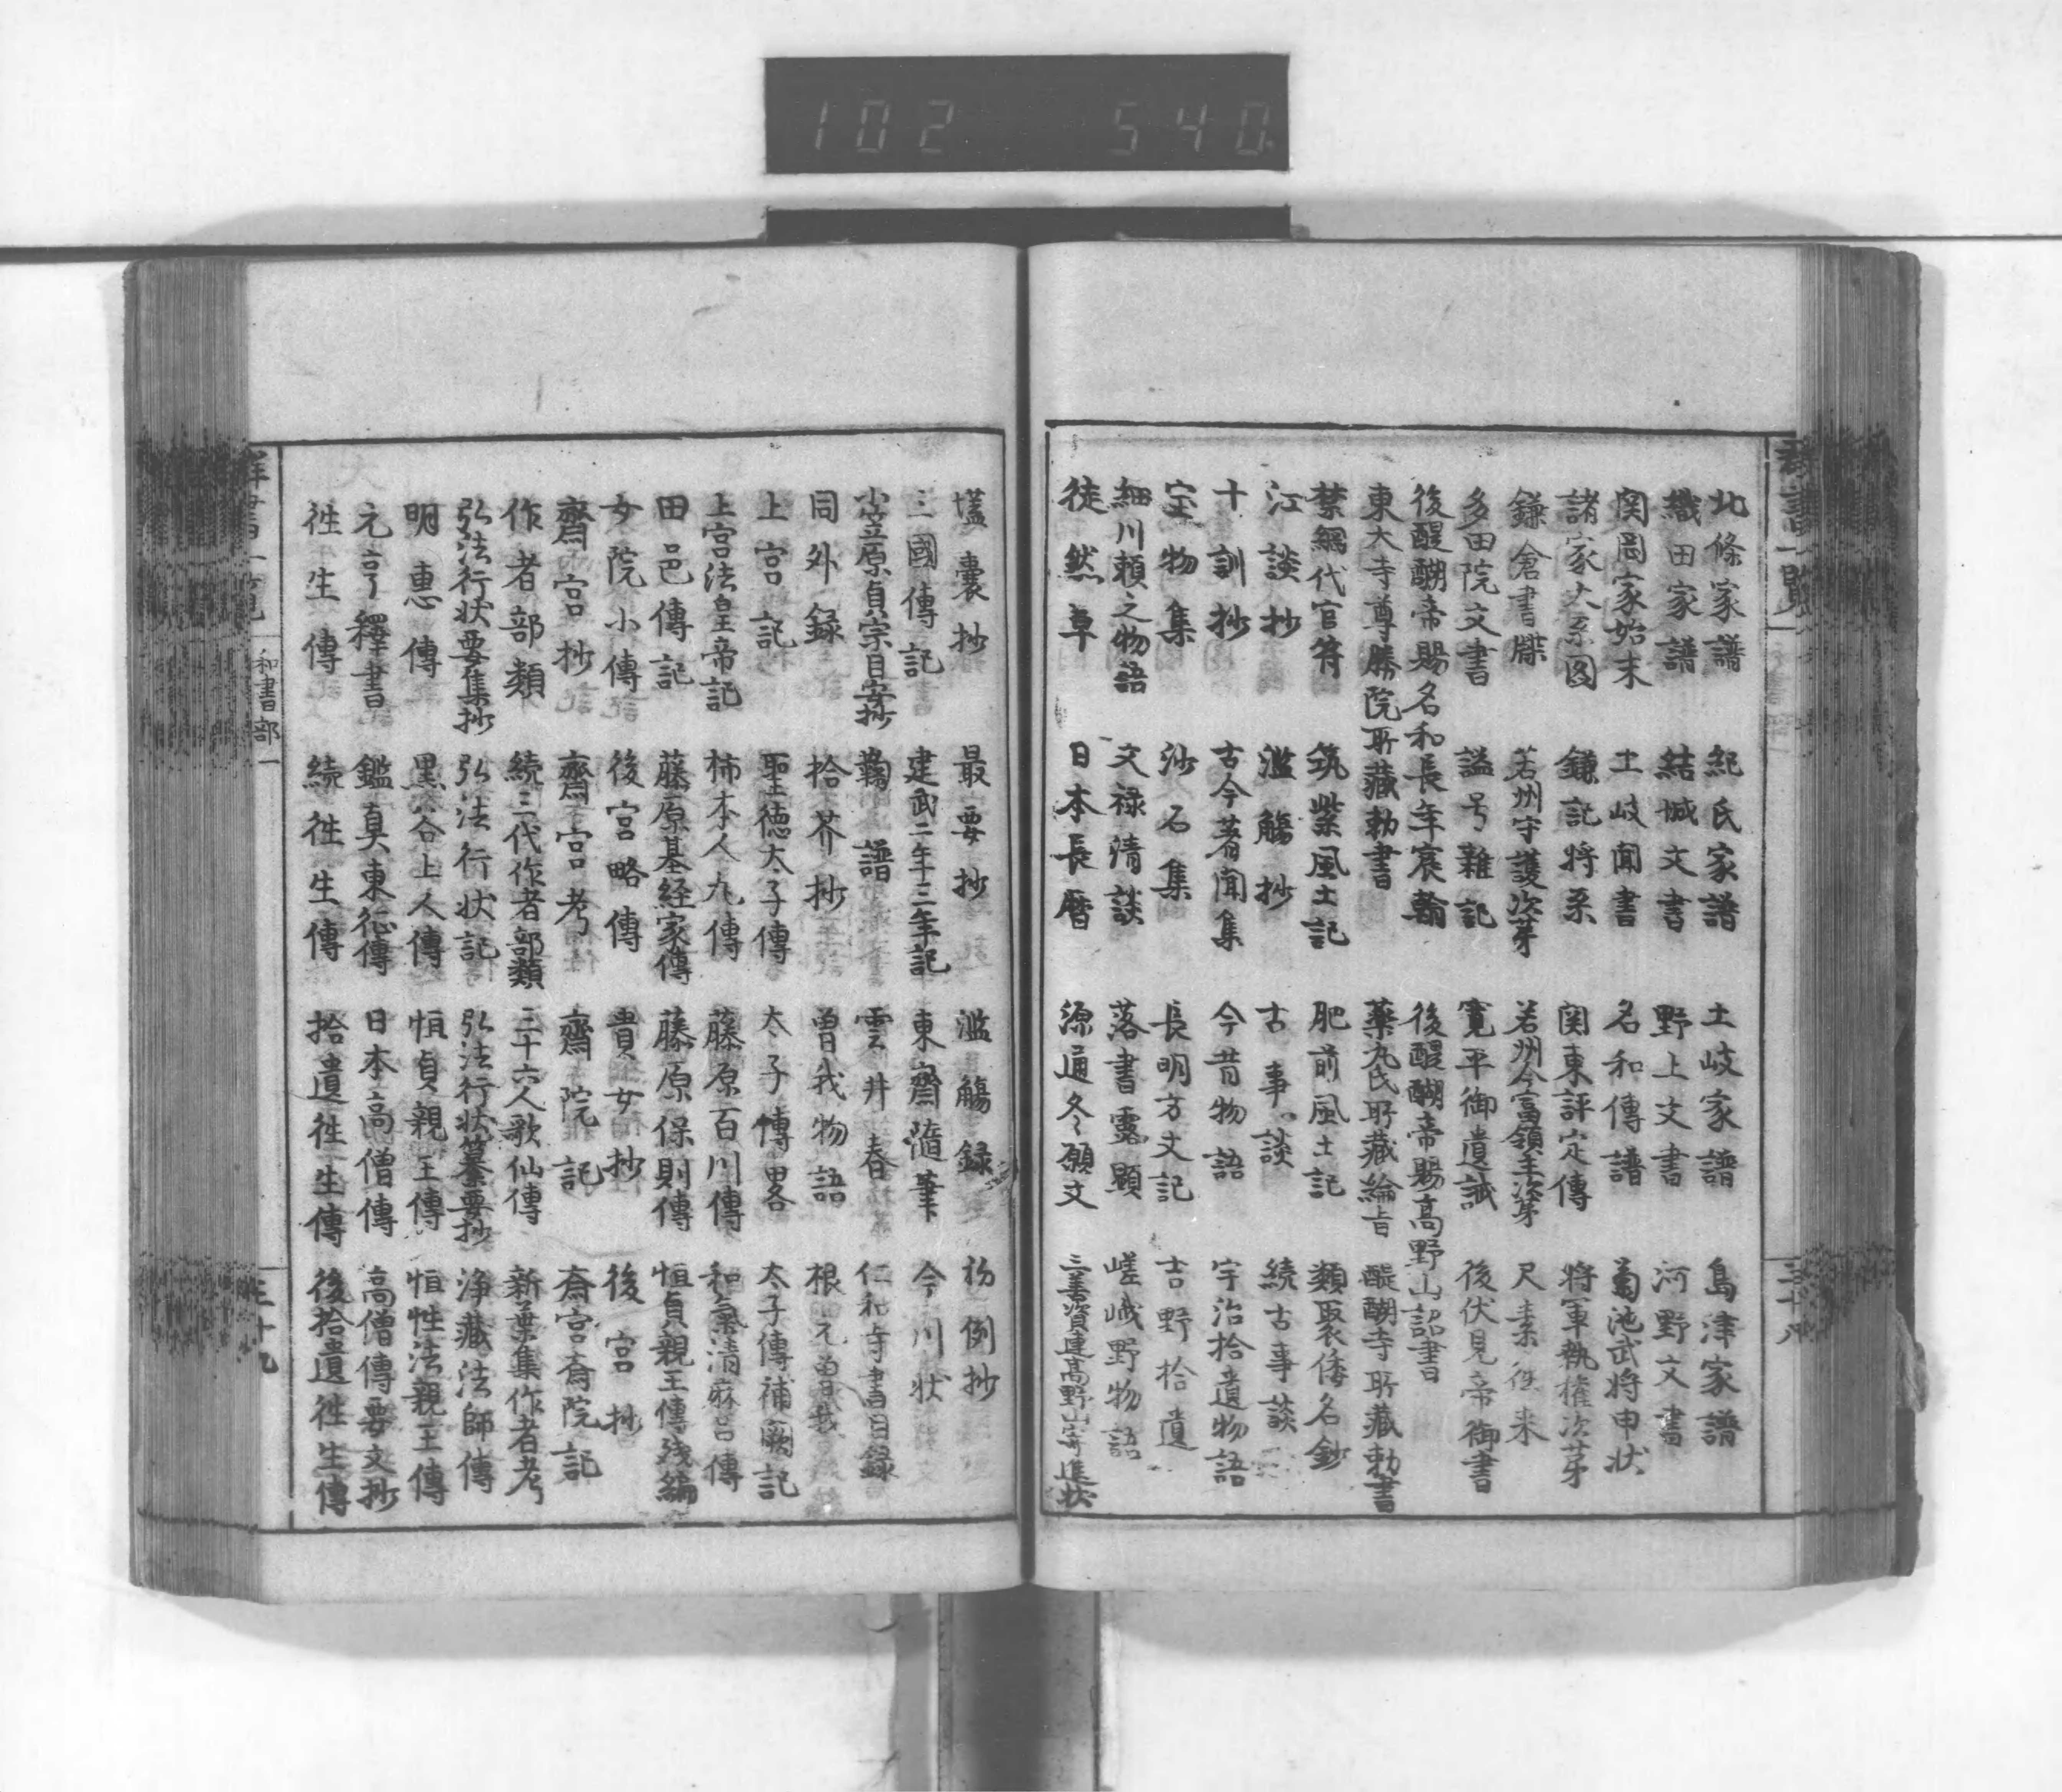 102 540
北條家譜 紀氏家譜 土岐家譜 島津家譜
織田家譜 結城文書 野上文書 河野文書
関岡家始末 土岐聞書 名和傳譜 菊池武将申状
諸家大系図 鎌記将系 関東評定傳 将軍執權次芽
鎌倉書牒 若州守護次芽 若州今富領主次芽 尺素往来
多田院文書 謚号雜記 寛平御遺誡 後伏見帝御書
後醍醐帝賜名和長年宸翰 後醍醐帝賜高野山詔書
東大寺尊勝院所藏勅書 藥丸氏所藏綸旨 醍醐寺所藏勅書
禁網代官符 筑紫風土記 肥前風土記 類聚倭名鈔
江談抄 濫觴抄 古事談 続古事談
十訓抄 古今著聞集 今昔物語 宇治拾遺物語
宝物集 沙石集 長明方丈記 吉野拾遺
細川頼之物語 文禄清談 落書露顕 嵯峨野物語
徒然草 日本長暦 源通冬願文 三善資連高野山寄進状
三十八
壒囊抄 最要抄 濫觴録 初例抄
三國傳記 建武二年三年記 東齋隨筆 今川状
小笠原貞宗目安抄 鞠譜 雲井春 仁和寺書目録
同外録 拾芥抄 曽我物語 根元曽我
上宮記 聖徳太子傳 太子傳畧 太子傳補闕記
上宮法皇帝記 柿本人丸傳 藤原百川傳 和氣清麻呂傳
田邑傳記 藤原基経家傳 藤原保則傳 恒貞親王傳残編
女院小傳 後宮略傳 貴女抄 後宮抄
齋宮抄 齋宮考 齋院記 斎宮斎院記
作者部類 続三代作者部類 三十六人歌仙傳 新葉集作者考
弘法行状要集抄 弘法行状記 弘法行状纂要抄 浄藏法師傳
明惠傳 黒谷上人傳 恒貞親王傳 恒性法親王傳
元亨釋書 鑑真東征傳 日本高僧傳 高僧傳要文抄
往生傳 続往生傳 拾遺往生傳 後拾遺往生傳
和書部一
三十九